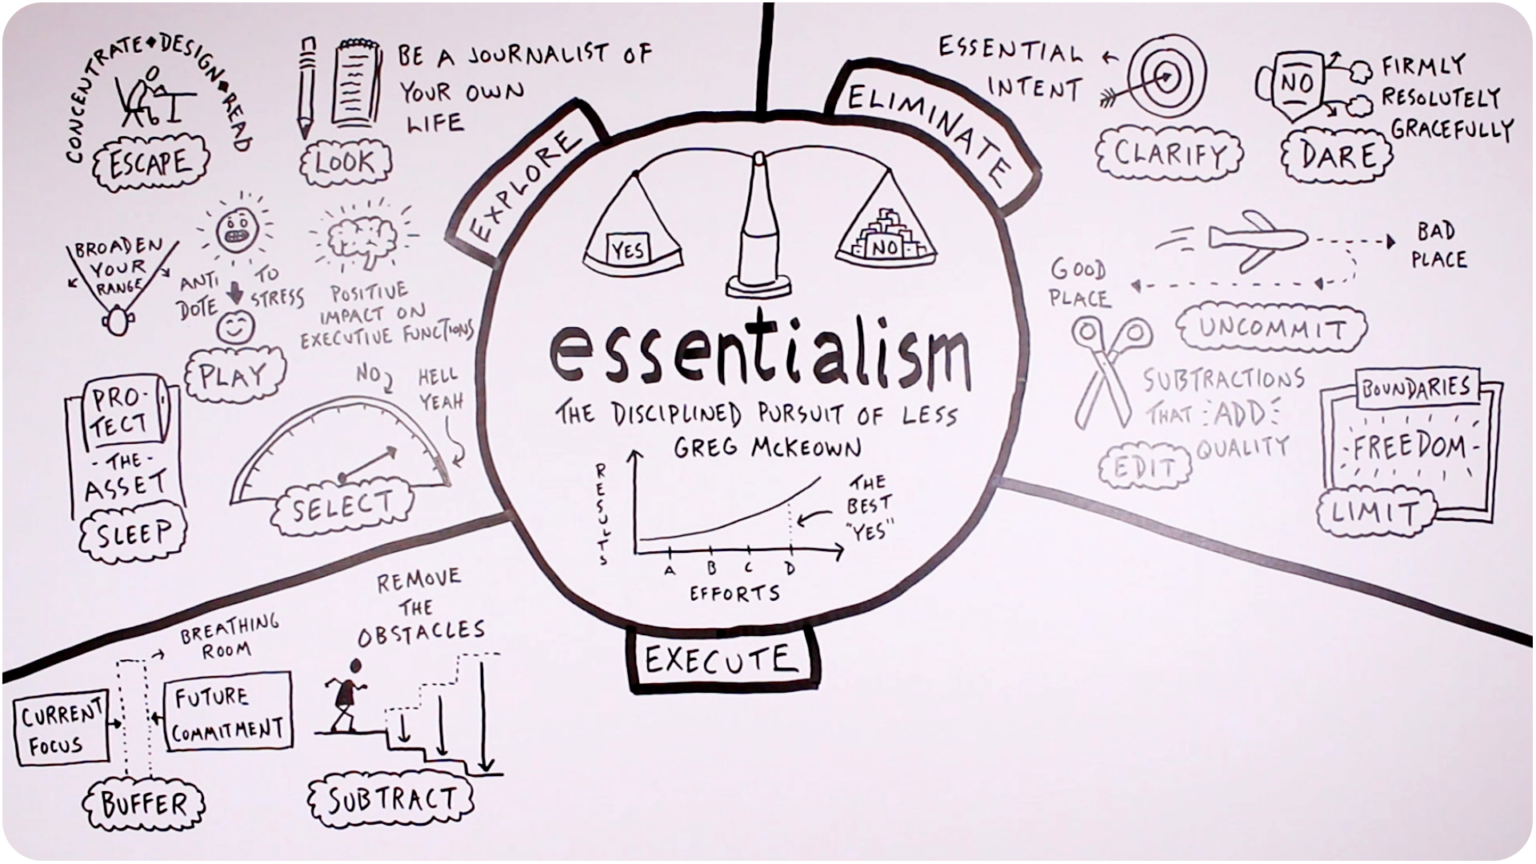 essentialism
THE DISCIPLINED PURSUIT OF LESS
GREG McKEOWN
YES
NO
RESULTS
A B C D
EFFORTS
THE
BEST
"YES"
EXPLORE
CONCENTRATE • DESIGN • READ
ESCAPE
BE A JOURNALIST OF
YOUR OWN
LIFE
LOOK
BROADEN
YOUR
RANGE
ANTI
DOTE
TO
STRESS
PLAY
POSITIVE
IMPACT ON
EXECUTIVE FUNCTIONS
PRO-
TECT
- THE -
ASSET
SLEEP
NO
HELL
YEAH
SELECT
ELIMINATE
ESSENTIAL
INTENT
CLARIFY
NO
FIRMLY
RESOLUTELY
GRACEFULLY
DARE
BAD
PLACE
GOOD
PLACE
UNCOMMIT
SUBTRACTIONS
THAT ADD
QUALITY
EDIT
BOUNDARIES
FREEDOM
LIMIT
EXECUTE
BREATHING
ROOM
CURRENT
FOCUS
FUTURE
COMMITMENT
BUFFER
REMOVE
THE
OBSTACLES
SUBTRACT